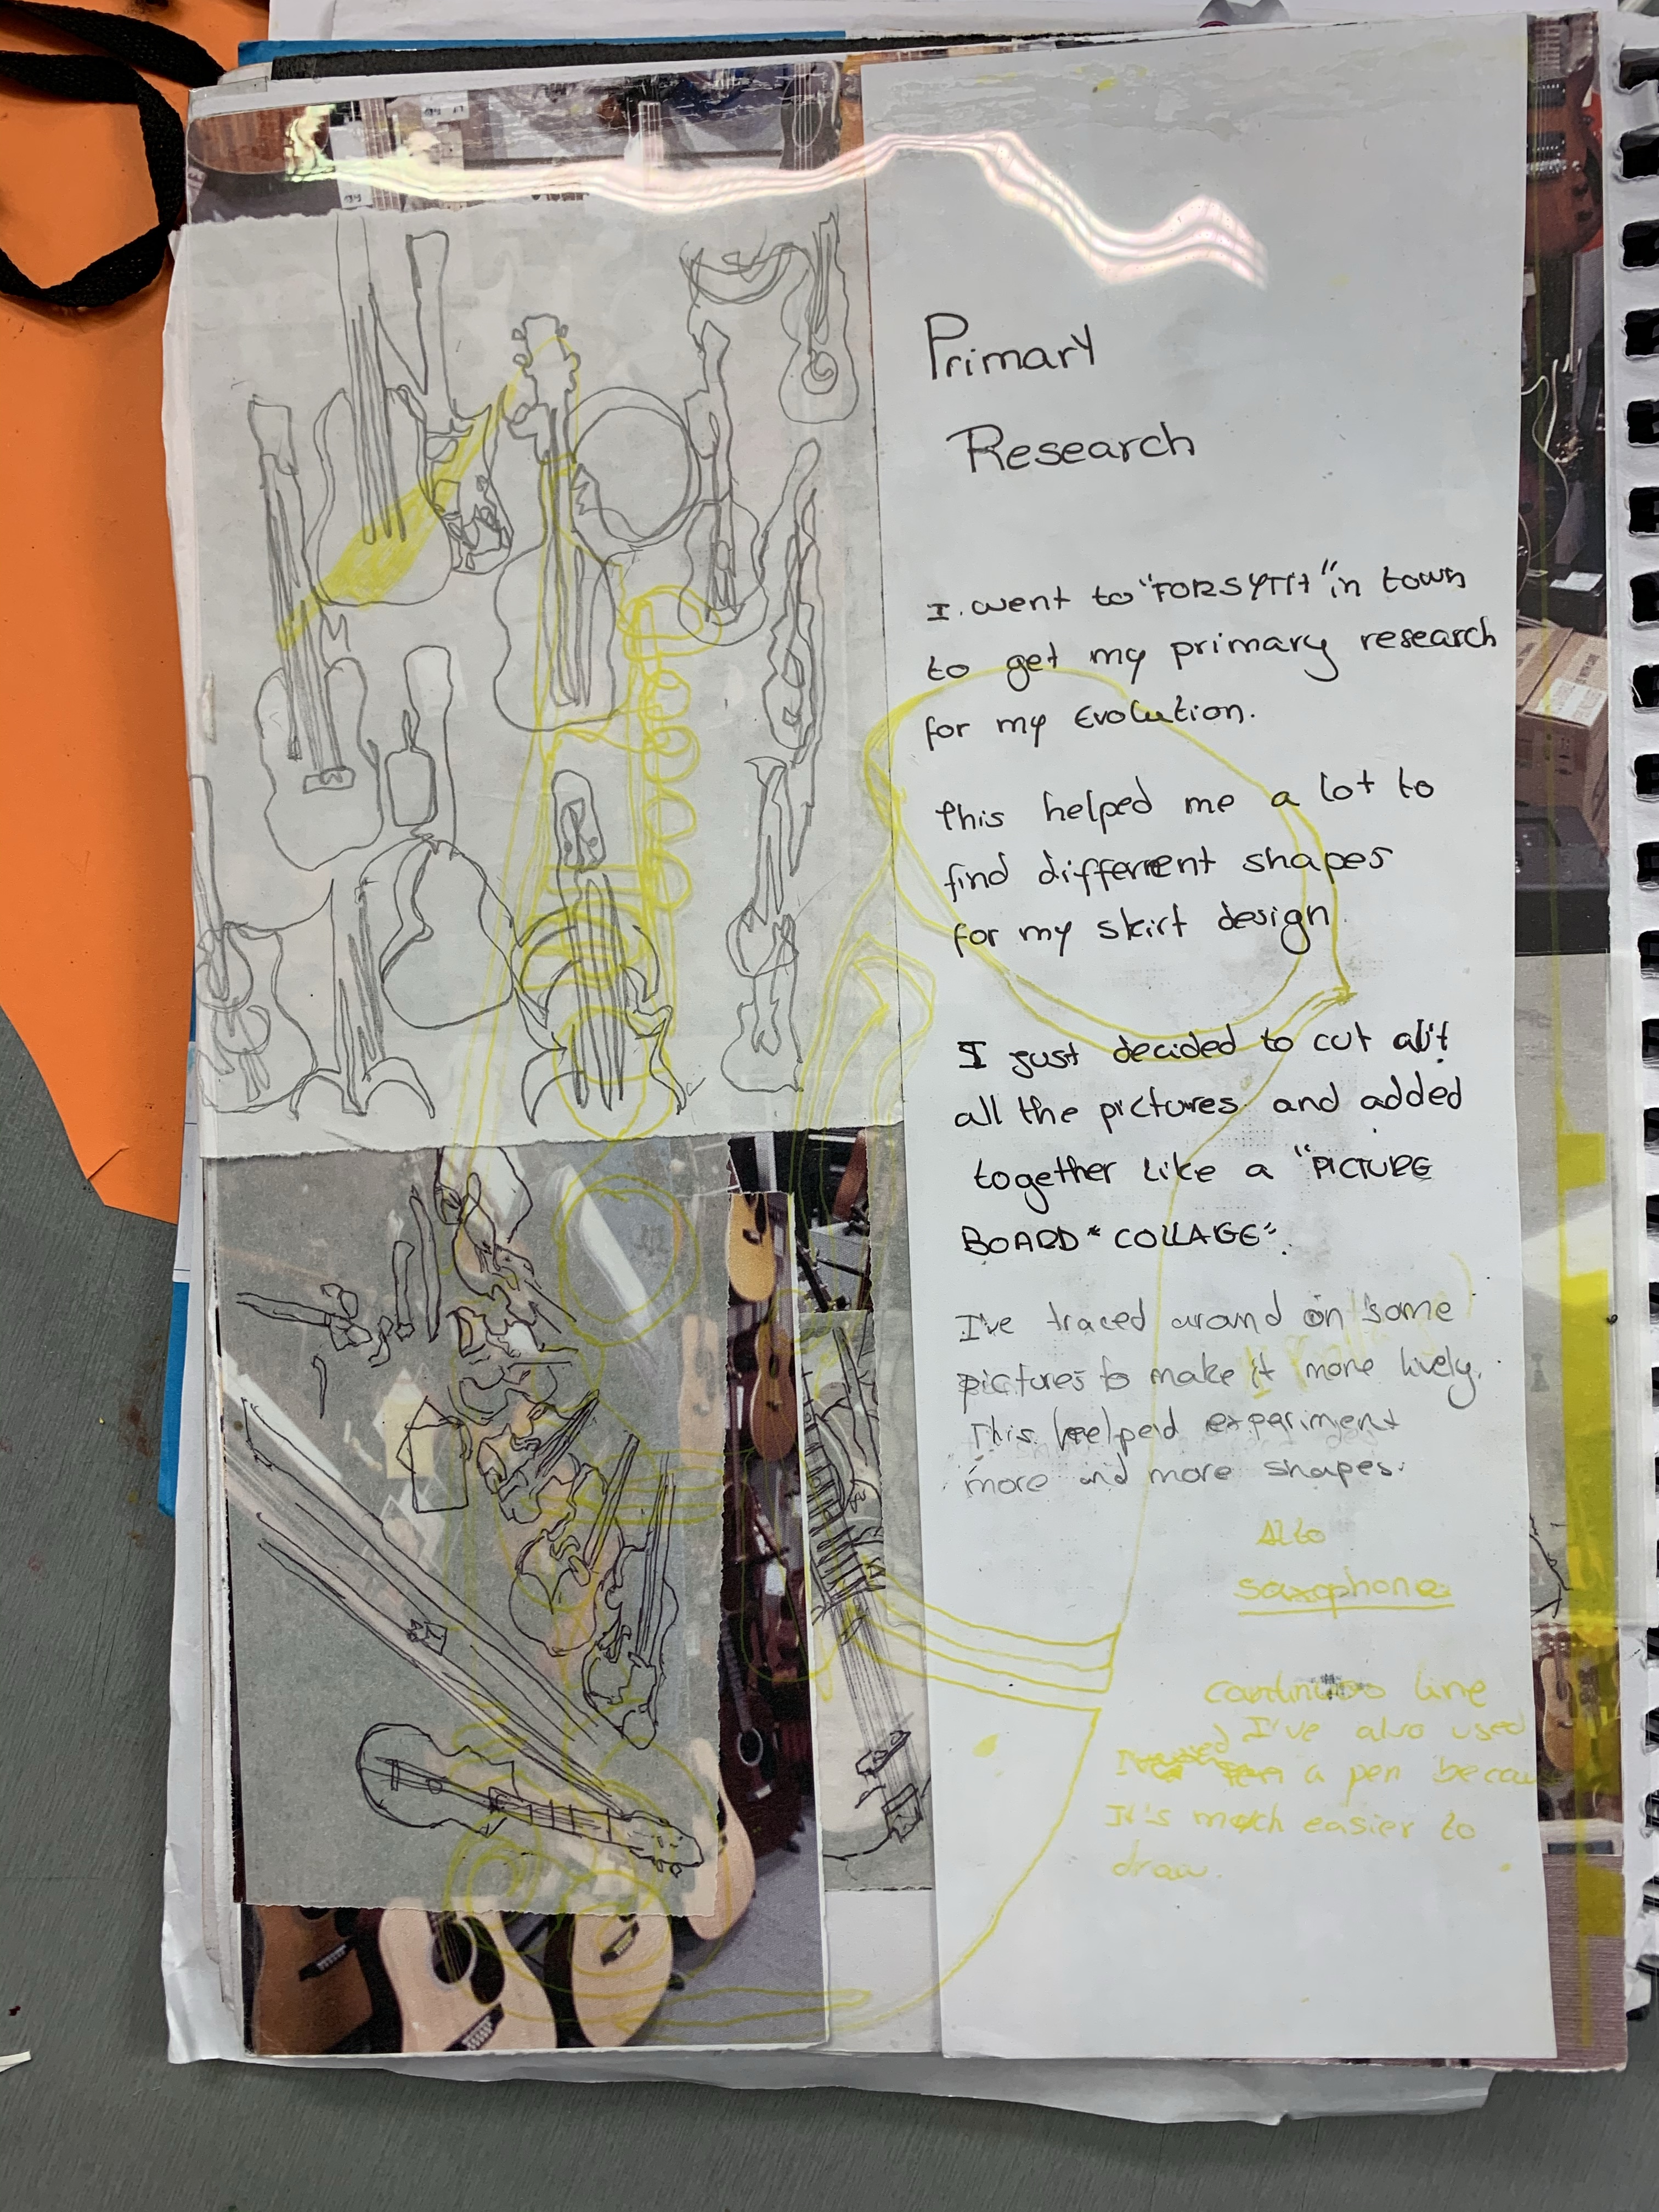 Primary
Research
I went to "FORSYTH" in town
to get my primary research
for my Evolution.
this helped me a lot to
find different shapes
for my skirt design.
I just decided to cut
all the pictures and added
together like a "PICTURE
BOARD * COLLAGE".
I've traced around on some
pictures to make it more lively.
This helped experiment
more and more shapes.
Alto
saxophone
line
I've also used
a pen
It's much easier to
draw.